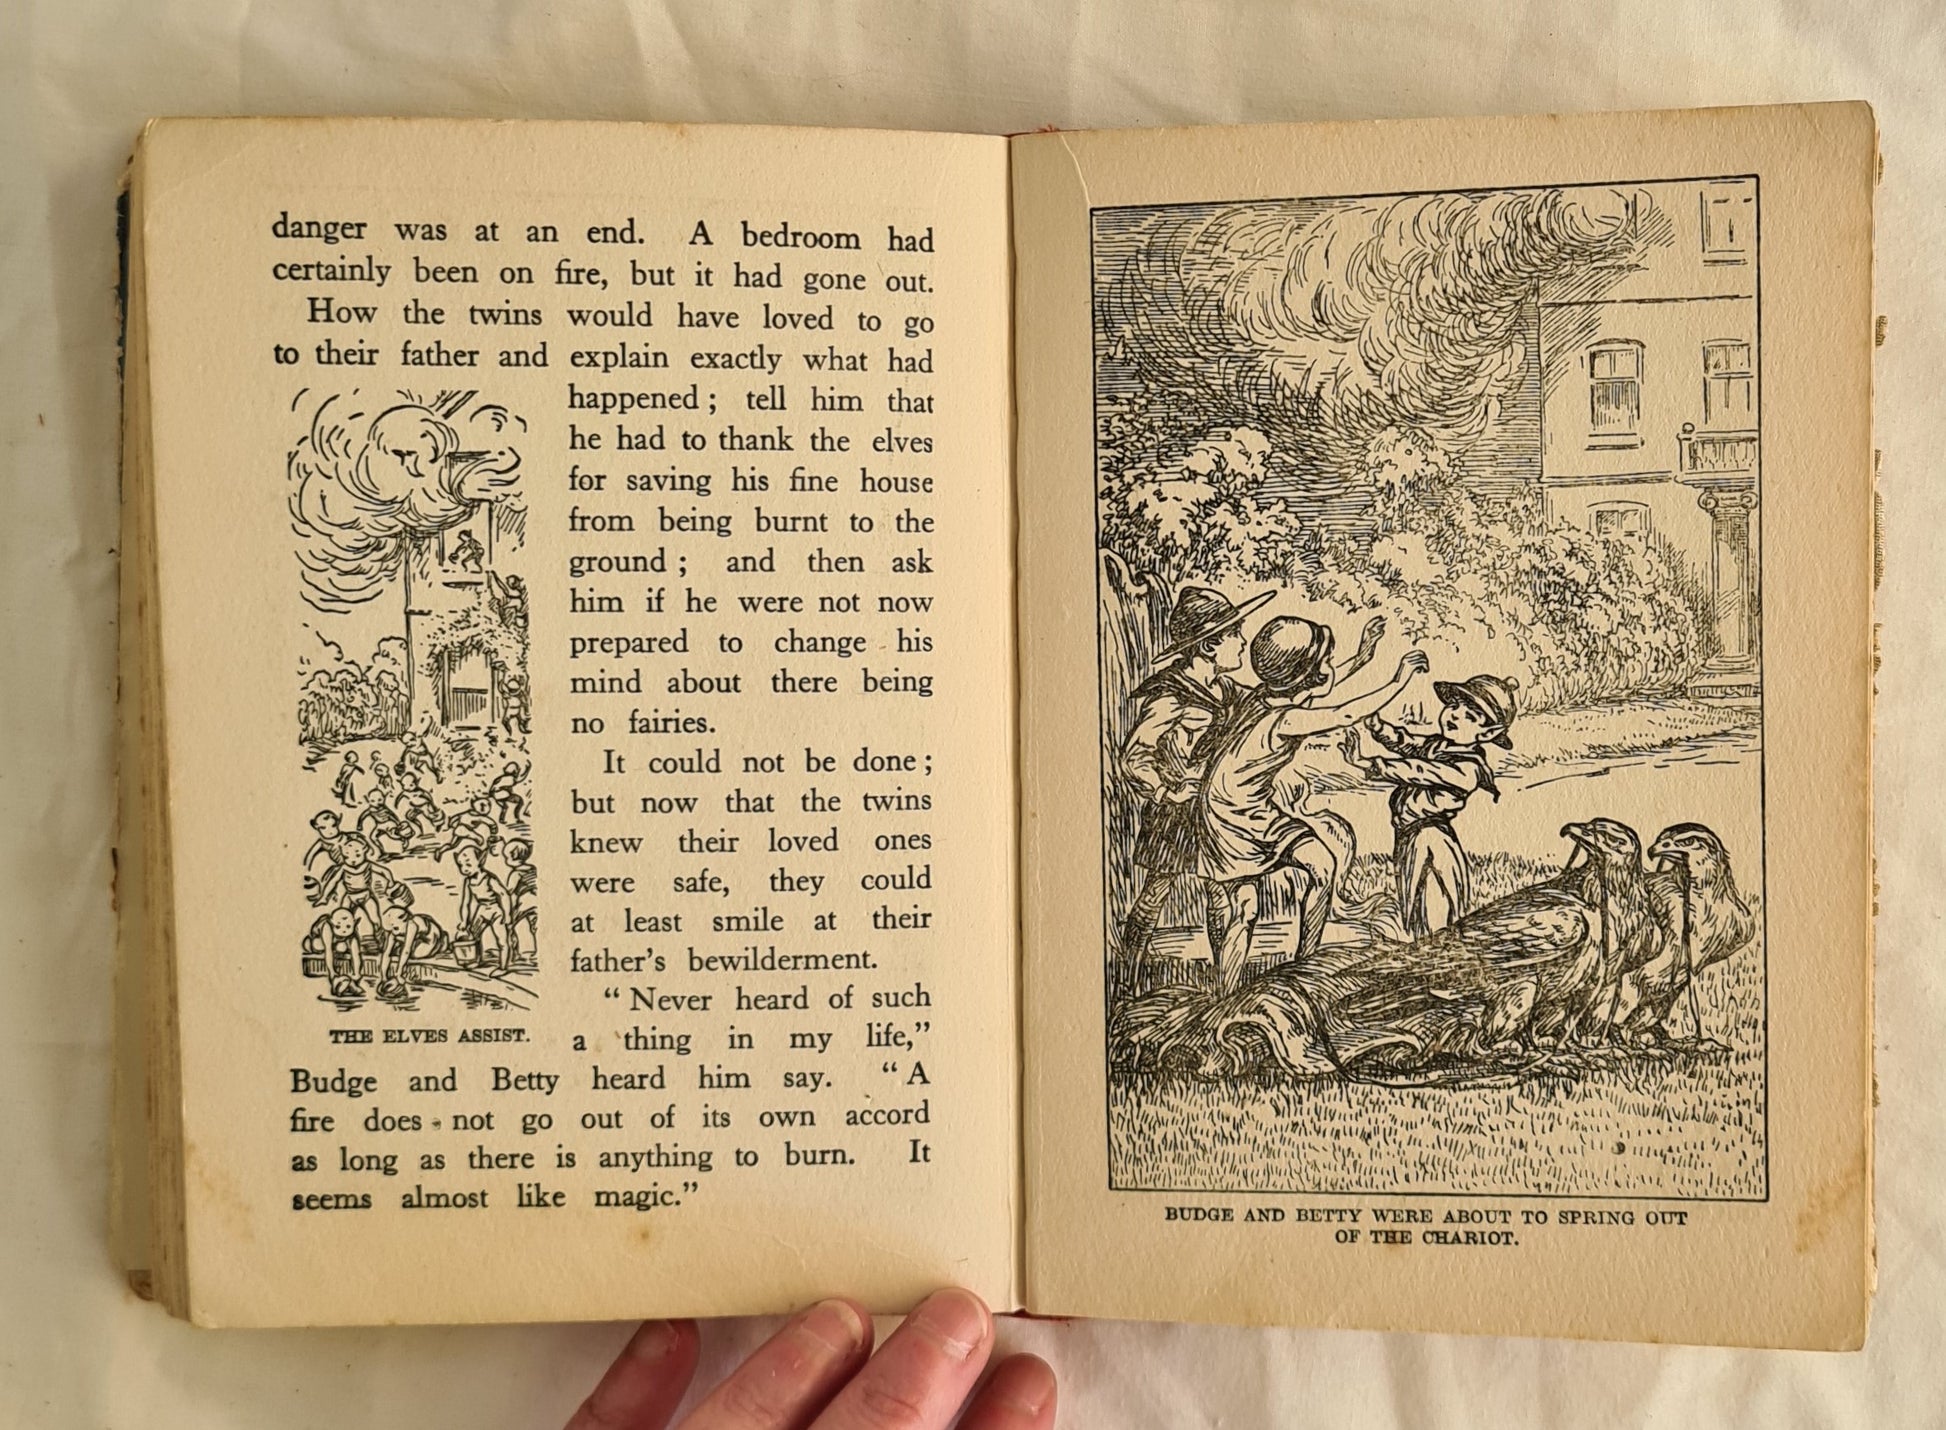 danger was at an end. A bedroom had
certainly been on fire, but it had gone out.
How the twins would have loved to go
to their father and explain exactly what had
happened ; tell him that
he had to thank the elves
for saving his fine house
from being burnt to the
ground ; and then ask
him if he were not now
prepared to change his
mind about there being
no fairies.
It could not be done ;
but now that the twins
knew their loved ones
were safe, they could
at least smile at their
father's bewilderment.
“ Never heard of such
a thing in my life,”
Budge and Betty heard him say. “ A
fire does not go out of its own accord
as long as there is anything to burn. It
seems almost like magic.”
THE ELVES ASSIST.
BUDGE AND BETTY WERE ABOUT TO SPRING OUT
OF THE CHARIOT.